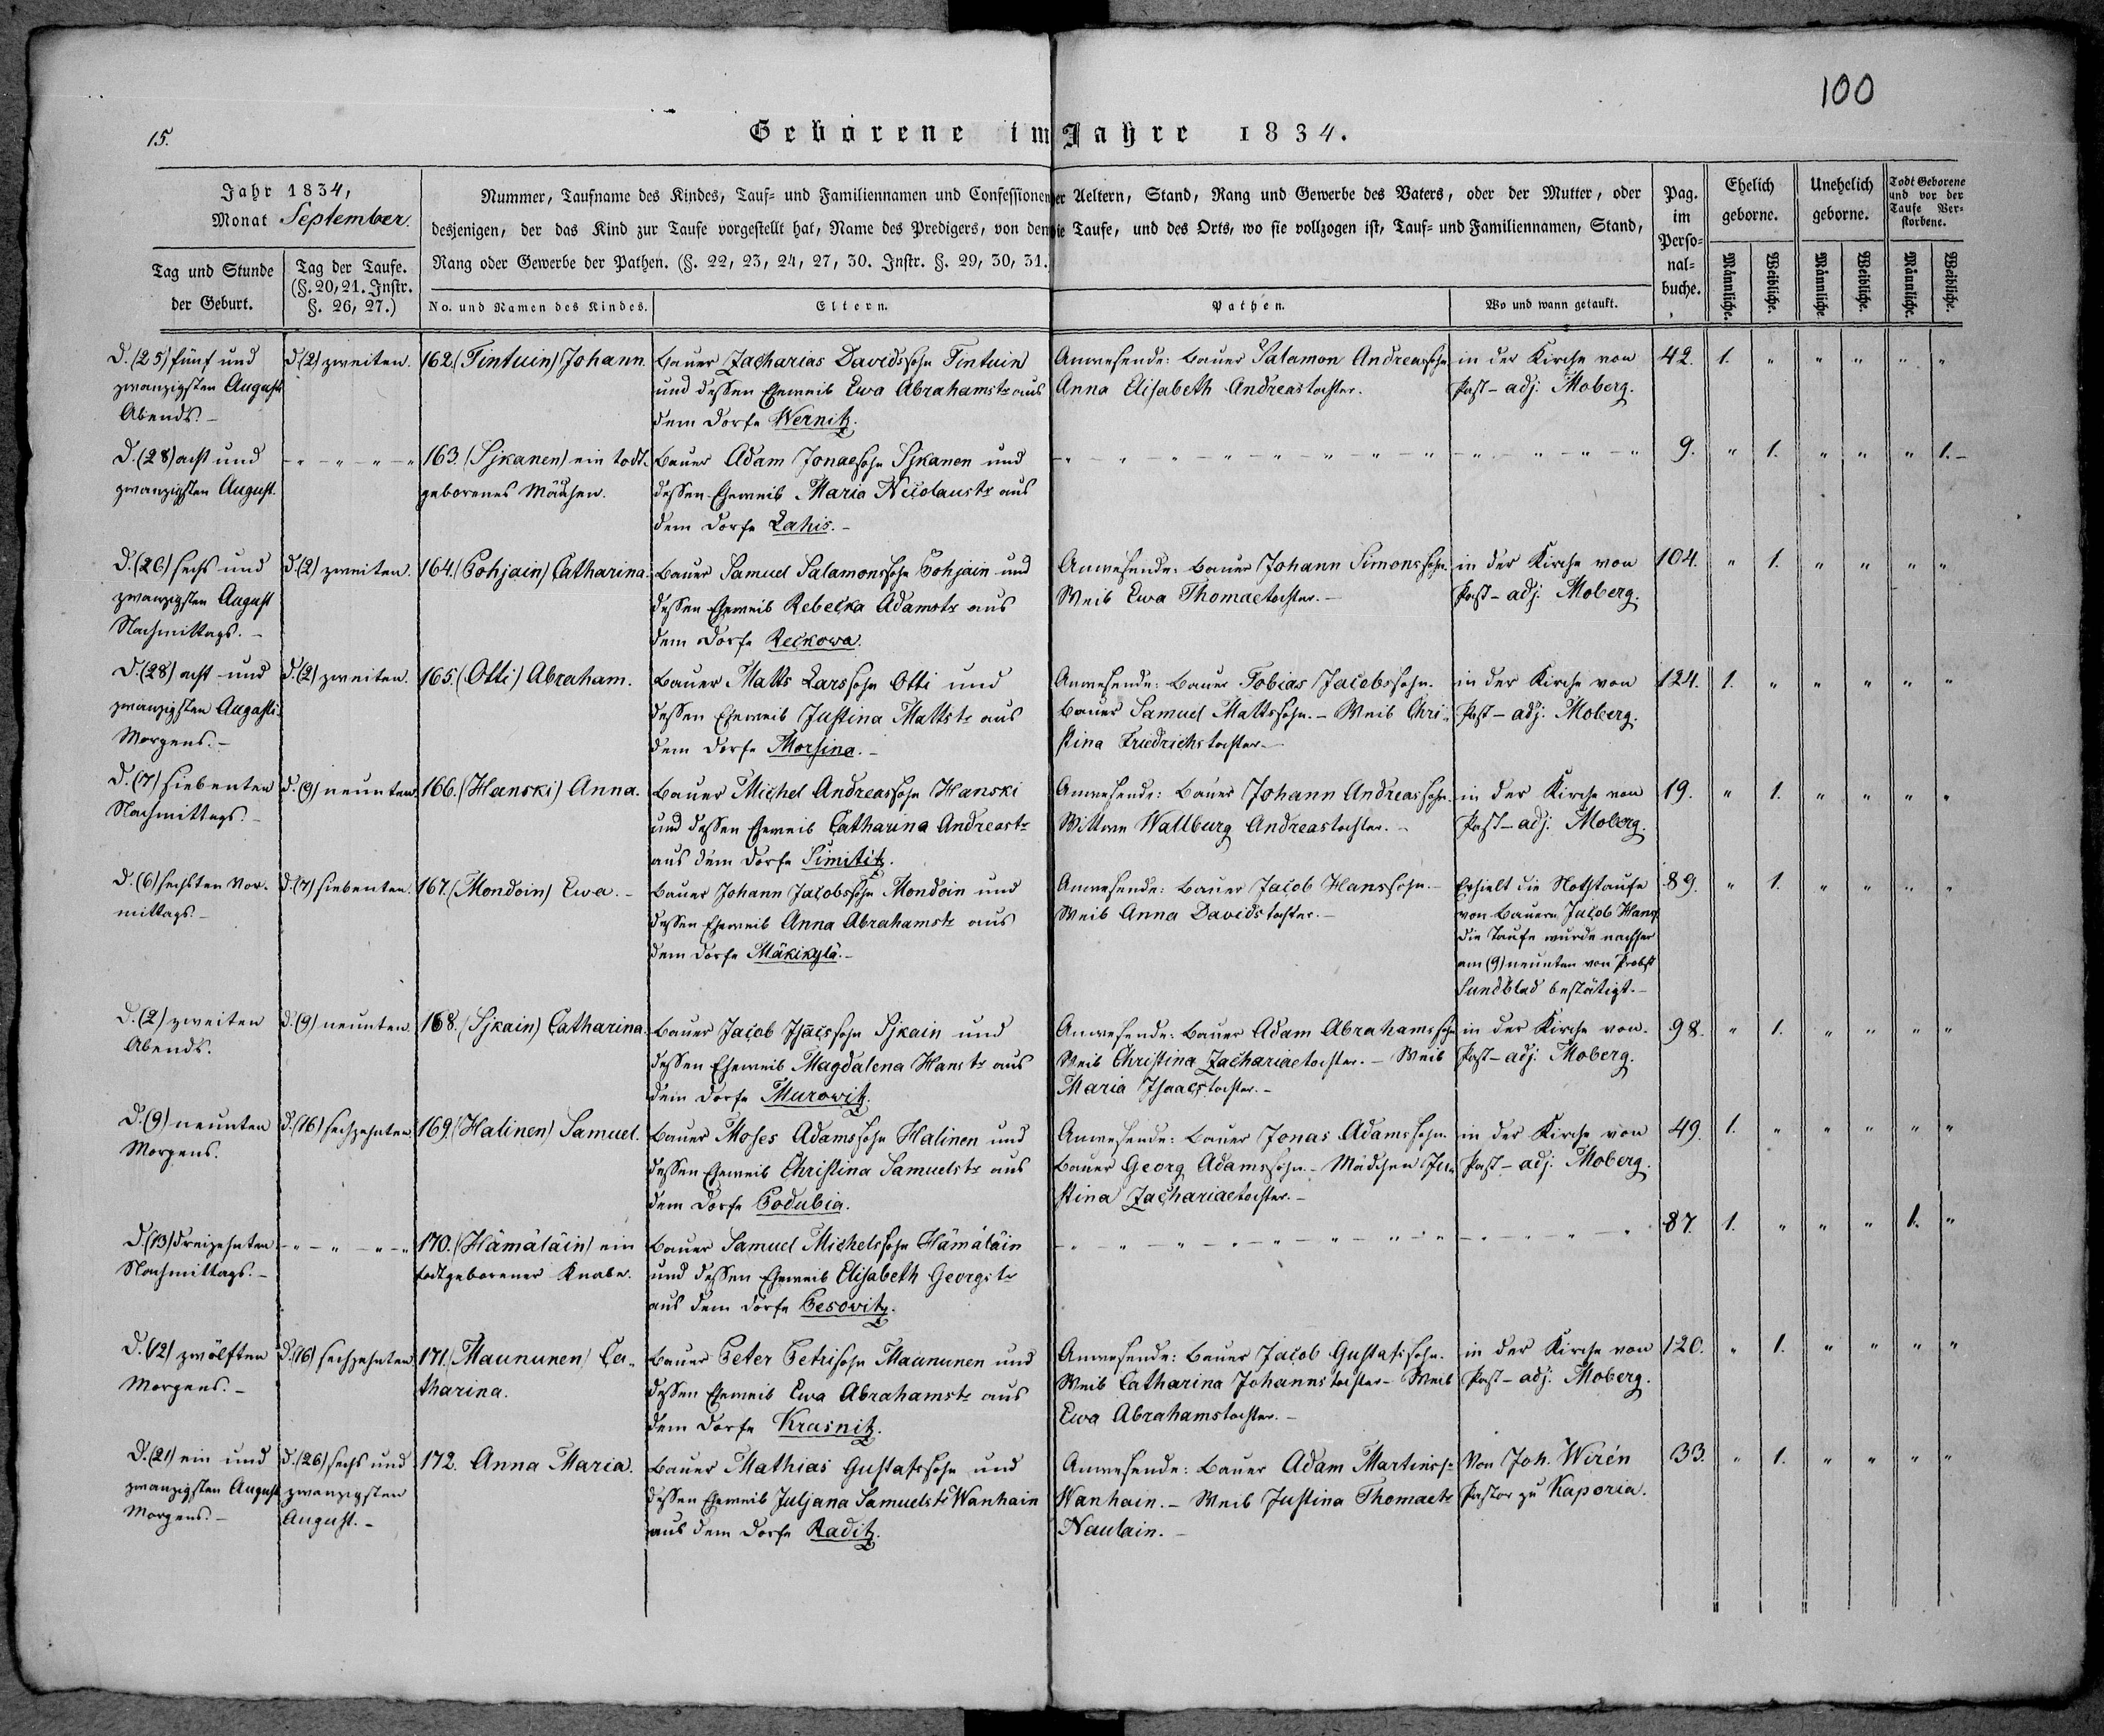 100
15.
Geborene im Jahre 1834.
Jahr 1834,
Monat September.
Tag und Stunde
der Geburt.
Tag der Taufe.
(§. 20, 21. Instr.
§. 26, 27.)
Nummer, Taufname des Kindes, Tauf- und Familiennamen und Confessionen der Aeltern, Stand, Rang und Gewerbe des Vaters, oder der Mutter, oder
desjenigen, der das Kind zur Taufe vorgestellt hat, Name des Predigers, von dem die Taufe, und des Orts, wo sie vollzogen ist, Tauf- und Familiennamen, Stand,
Rang oder Gewerbe der Pathen. (§. 22, 23, 24, 27, 30. Instr. §. 29, 30, 31.
No. und Namen des Kindes.
Eltern.
Pathen.
Wo und wann getauft.
Pag.
im
Perso=
nal=
buche.
Ehelich
geborne.
Unehelich
geborne.
Todt Geborene
und vor der
Taufe Ver=
storbene.
Männliche.
Weibliche.
Männliche.
Weibliche.
Männliche.
Weibliche.
D. (25) fünf und
zwanzigsten August
Abends. –
d. (2) zweiten.
162. (Tintuin) Johann.
Bauer Zacharias Davidssohn Tintuin
und dessen Eheweib Ewa Abrahamstr aus
dem Dorfe Wernitz.
Anwesende: Bauer Salamon Andreassohn
Anna Elisabeth Andreastochter.
in der Kirche von
Past – adj. Moberg.
42. 1. " " " " "
D. (28) acht und
zwanzigsten August.
– " – " – " – "
163. (Sjkanen) ein todt-
geborenes Mädchen.
Bauer Adam Jonaesohn Sjkanen und
dessen Eheweib Maria Nicolaustr aus
dem Dorfe Lahis. –
9. " 1. " " " 1. –
D. (26) sechs und
zwanzigsten August
Nachmittags. –
d. (2) zweiten.
164. (Pohjain) Catharina.
Bauer Samuel Salamonssohn Pohjain und
dessen Eheweib Rebecka Adamstr aus
dem Dorfe Reckowa.
Anwesende: Bauer Johann Simonssohn.
Weib Ewa Thomaetochter. –
in der Kirche von
Past – adj. Moberg.
104. " 1. " " " "
D. (28) acht und
zwanzigsten Augusti
Morgens. –
d. (2) zweiten.
165. (Otti) Abraham.
Bauer Matts Larssohn Otti und
dessen Eheweib Justina Mattstr aus
dem Dorfe Morsina. –
Anwesende: Bauer Tobias Jacobssohn.
Bauer Samuel Mattssohn. – Weib Chri-
stina Friedrichstochter –
in der Kirche von
Past – adj. Moberg.
124. 1. " " " " "
D. (7) siebenten
Nachmittags. –
d. (9) neunten.
166. (Hanski) Anna.
Bauer Michel Andreassohn Hanski
und dessen Eheweib Catharina Andreastr
aus dem Dorfe Simititz.
Anwesende: Bauer Johann Andreassohn.
Wittwe Wallburg Andreastochter. –
in der Kirche von
Past – adj. Moberg.
19. " 1. " " " "
D. (6) sechsten Vor-
mittags. –
d. (7) siebenten.
167. (Mondoin) Ewa. –
Bauer Johann Jacobssohn Mondoin und
dessen Eheweib Anna Abrahamstr aus
dem Dorfe Mäkikylä. –
Anwesende: Bauer Jacob Hanssohn. –
Weib Anna Davidstochter. –
Erhielt die Nothtaufe
von Bauern Jacob Hans
die Taufe wurde nachher
am (9) neunten von Probst
Sundblad bestätigt. –
89. " 1. " " " "
D. (2) zweiten
Abends.
d. (9) neunten
168. (Sjkain) Catharina.
Bauer Jacob Isacssohn Sjkain und
dessen Eheweib Magdalena Hanstr aus
dem Dorfe Murowitz.
Anwesende: Bauer Adam Abrahamssohn
Weib Christina Zachariaetochter. – Weib
Maria Isaacstochter. –
in der Kirche von.
Past – adj. Moberg.
98. " 1. " " " "
D. (9) neunten
Morgens.
d. (16) sechzehnten
169. (Halinen) Samuel.
Bauer Moses Adamssohn Halinen und
dessen Eheweib Christina Samuelstr aus
dem Dorfe Podubia.
Anwesende: Bauer Jonas Adamssohn.
Bauer Georg Adamssohn. – Mädchen Ju-
stina Zachariaetochter. –
in der Kirche von
Past – adj. Moberg.
49. 1. " " " " "
D. (13) dreizehnten
Nachmittags. –
– " – " – " – "
170. (Hämäläin) ein
todtgeborener Knabe.
Bauer Samuel Michelssohn Hämäläin
und dessen Eheweib Elisabeth Georgstr
aus dem Dorfe Pesovitz.
87. 1. " " " 1. "
D. (12) zwölften
Morgens. –
d. (16) sechzehnten
171. (Maununen) Ca-
tharina.
Bauer Peter Petrisohn Maununen und
dessen Eheweib Ewa Abrahamstr aus
dem Dorfe Krasnitz.
Anwesende: Bauer Jacob Gustafssohn.
Weib Catharina Johannstochter – Weib
Ewa Abrahamstochter. –
in der Kirche von
Past – adj. Moberg.
120. " 1. " " " "
D. (21) ein und
zwanzigsten August
Morgens. –
d. (26) sechs und
zwanzigsten
August. –
172. Anna Maria.
Bauer Mathias Gustafssohn und
dessen Eheweib Juljana Samuelstr Wanhain
aus dem Dorfe Raditz.
Anwesende: Bauer Adam Martinss-
Wanhain. – Weib Justina Thomaetr
Naulain. –
Von Joh. Wirén
Pastor zu Kaporia.
33. " 1. " " " "